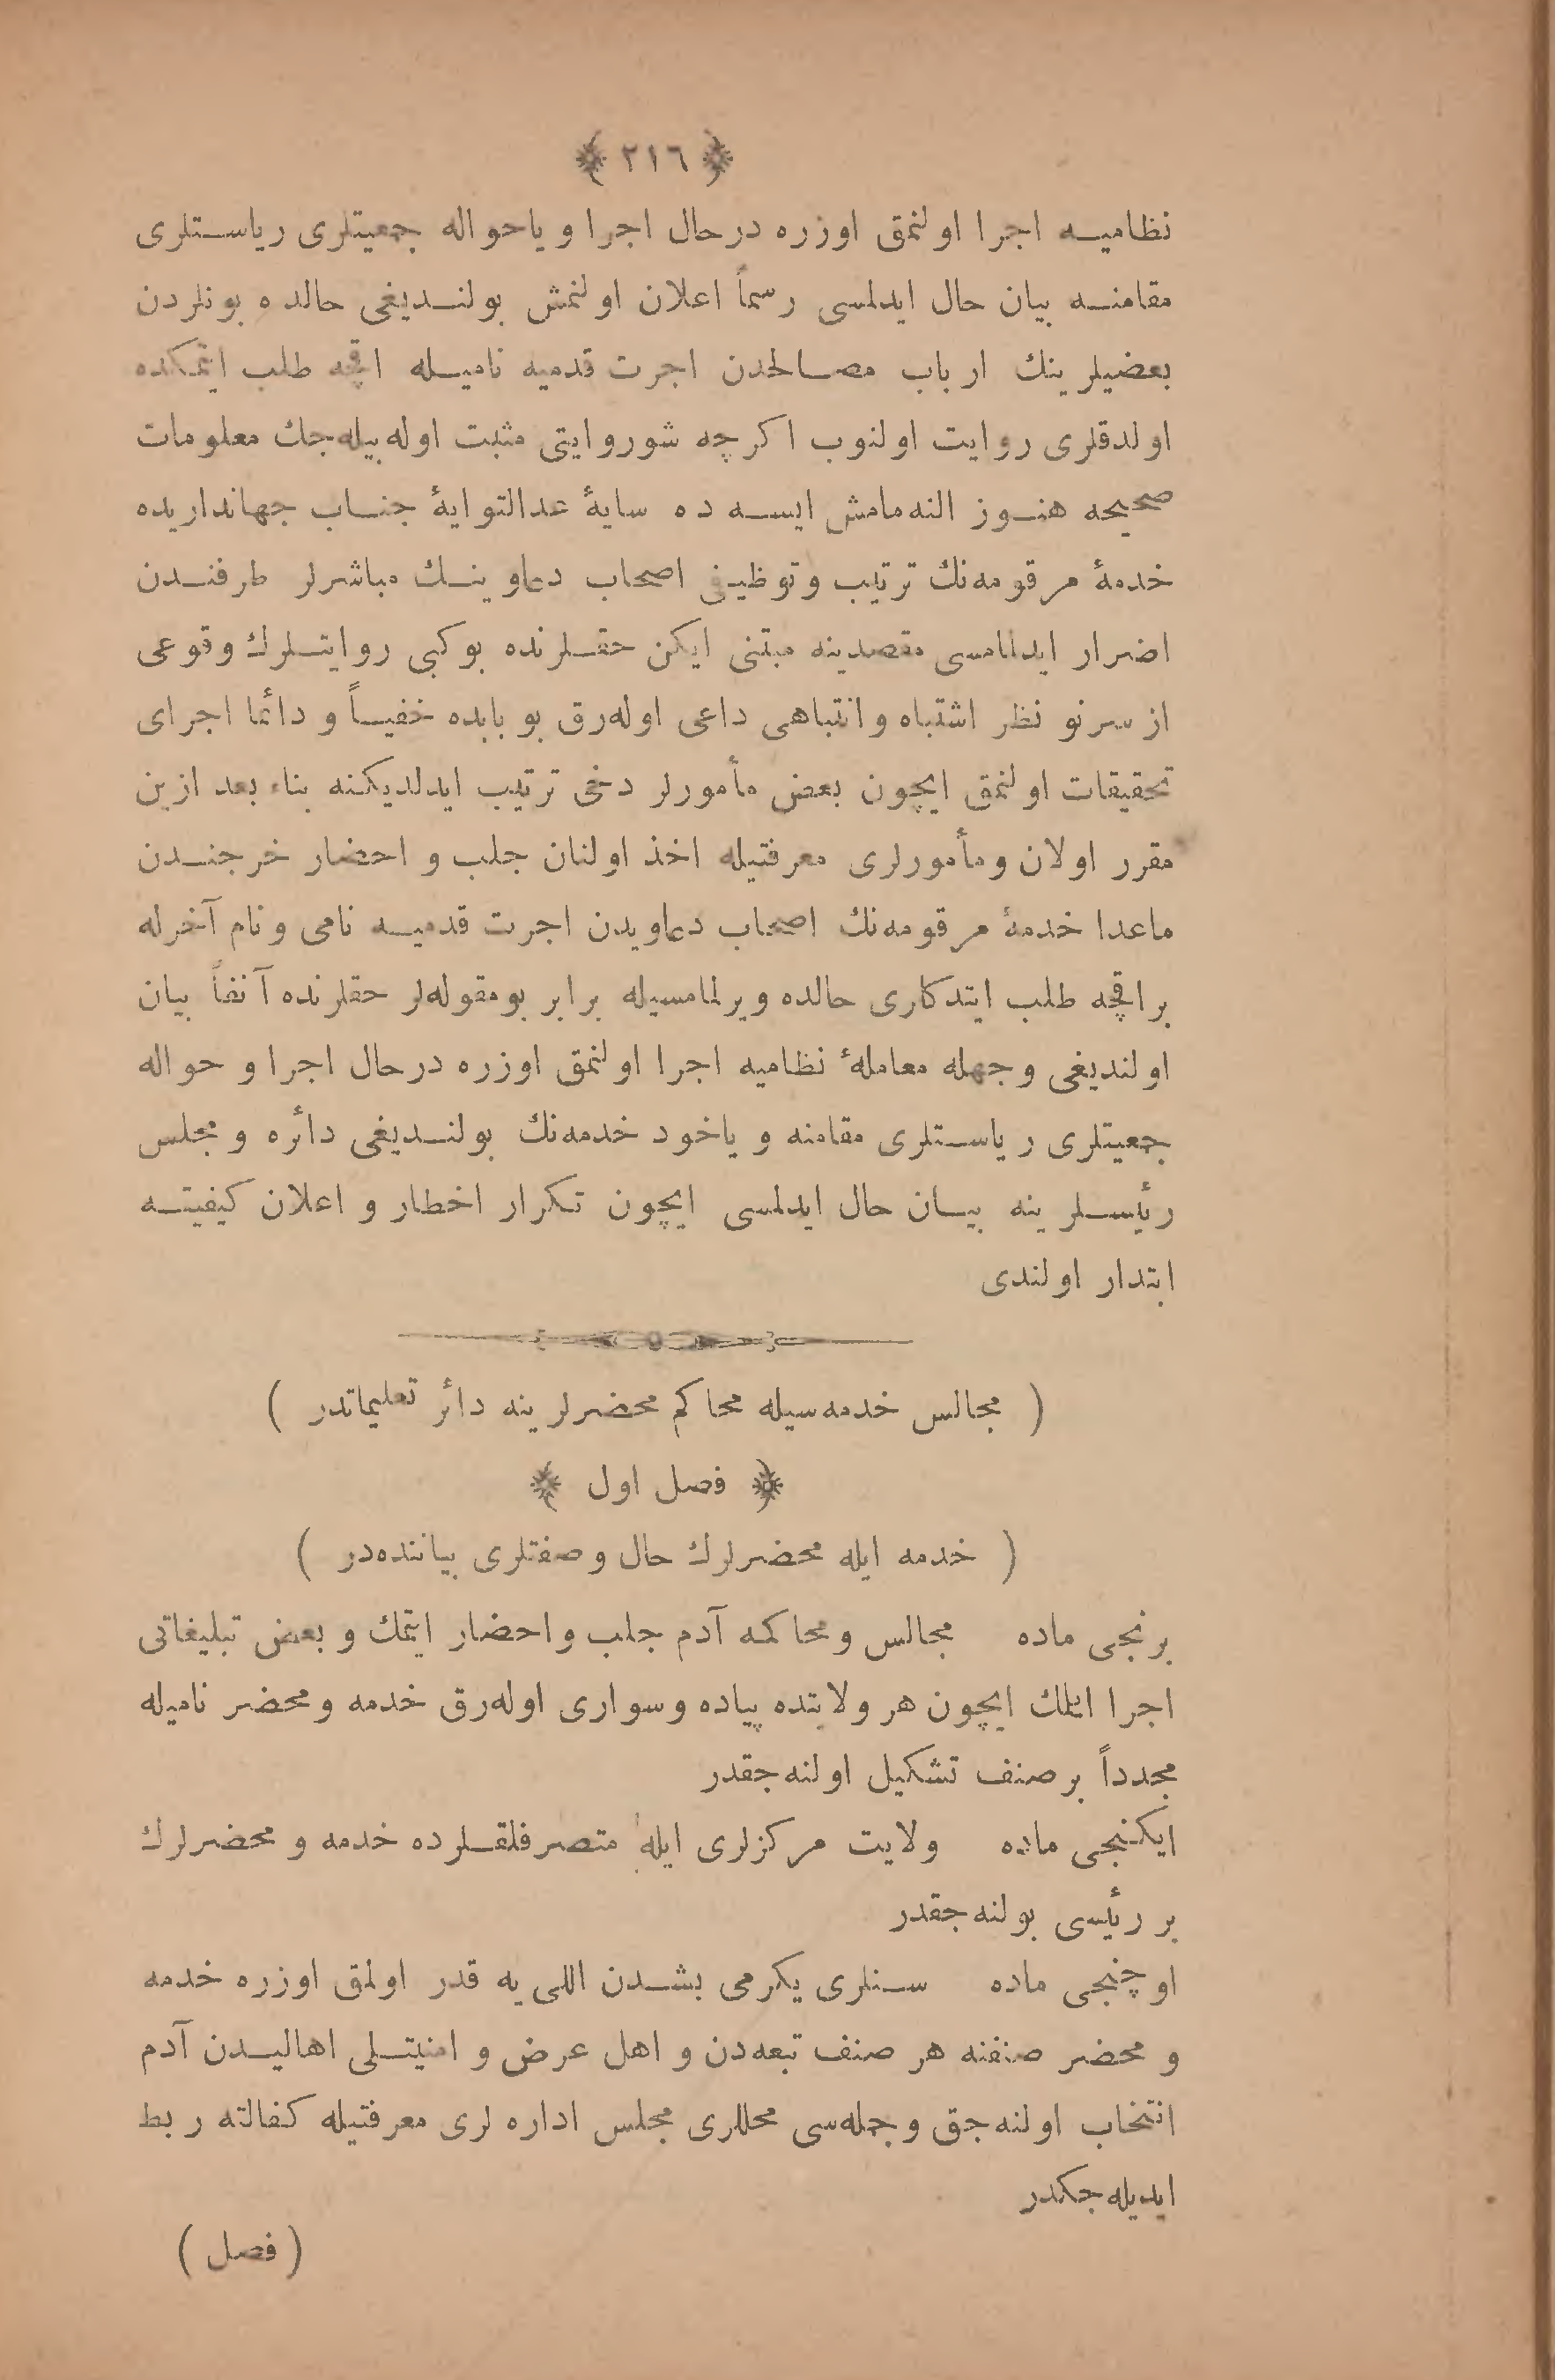 ﴿ ٢١٦ ﴾
نظامیه اجرا اولنمق اوزره درحال اجرا و یاحواله جمعیتلری ریاستلری
مقامنه بیان حال ایدلسی رسماً اعلان اولنمش بولندیغی حالده بونلردن
بعضیلرینك ارباب مصالحدن اجرت قدمیه نامیله اقچه طلب ایتمكده
اولدقلری روایت اولنوب اكرچه شوروایتی مثبت اوله‌بیله‌جك معلومات
صحیحه هنوز النه‌مامش ایسه ده سایهٔ عدالتوایهٔ جناب جهانداریده
خدمهٔ مرقومه‌نك ترتیب وتوظیفی اصحاب دعاوینك مباشرلر طرفندن
اضرار ایدلمامسی مقصدینه مبتنی ایكن حقلرنده بوكبی روایتلرك وقوعی
از سر نو نظر اشتباه وانتباهی داعی اوله‌رق بو بابده خفیاً و دائما اجرای
تحقیقات اولنمق ایچون بعض مأمورلر دخی ترتیب ایدلدیكنه بناء بعد ازین
مقرر اولان ومأمورلری معرفتیله اخذ اولنان جلب و احضار خرجندن
ماعدا خدمهٔ مرقومه‌نك اصحاب دعاویدن اجرت قدمیه نامی ونام آخرله
براقچه طلب ایتدكلری حالده ویرلمامسیله برابر بومقوله‌لر حقلرنده آنفاً بیان
اولندیغی وجهله معاملهٔ نظامیه اجرا اولنمق اوزره درحال اجرا و حواله
جمعیتلری ریاستلری مقامنه و یاخود خدمه‌نك بولندیغی دائره و مجلس
رئیسلرینه بیان حال ایدلسی ایچون تكرار اخطار و اعلان كیفیته
ابتدار اولندی
( مجالس خدمه‌سیله محاكم محضرلرینه دائر تعلیماتدر )
﴿ فصل اول ﴾
( خدمه ایله محضرلرك حال وصفتلری بیاننده‌در )
برنجی ماده مجالس ومحاكمه آدم جلب واحضار ایتمك و بعض تبلیغاتی
اجرا ایلمك ایچون هر ولایتده پیاده وسواری اوله‌رق خدمه ومحضر نامیله
مجدداً برصنف تشكیل اولنه‌جقدر
ایكنجی ماده ولایت مركزلری ایله متصرفلقلرده خدمه و محضرلرك
بر رئیسی بولنه‌جقدر
اوچنجی ماده سنلری یكرمی بشدن اللی یه قدر اولمق اوزره خدمه
و محضر صنفنه هر صنف تبعه‌دن و اهل عرض و امنیتلی اهالیدن آدم
انتخاب اولنه‌جق وجمله‌سی محللری مجلس اداره لری معرفتیله كفالته ربط
ایدیله‌جكدر
( فصل )